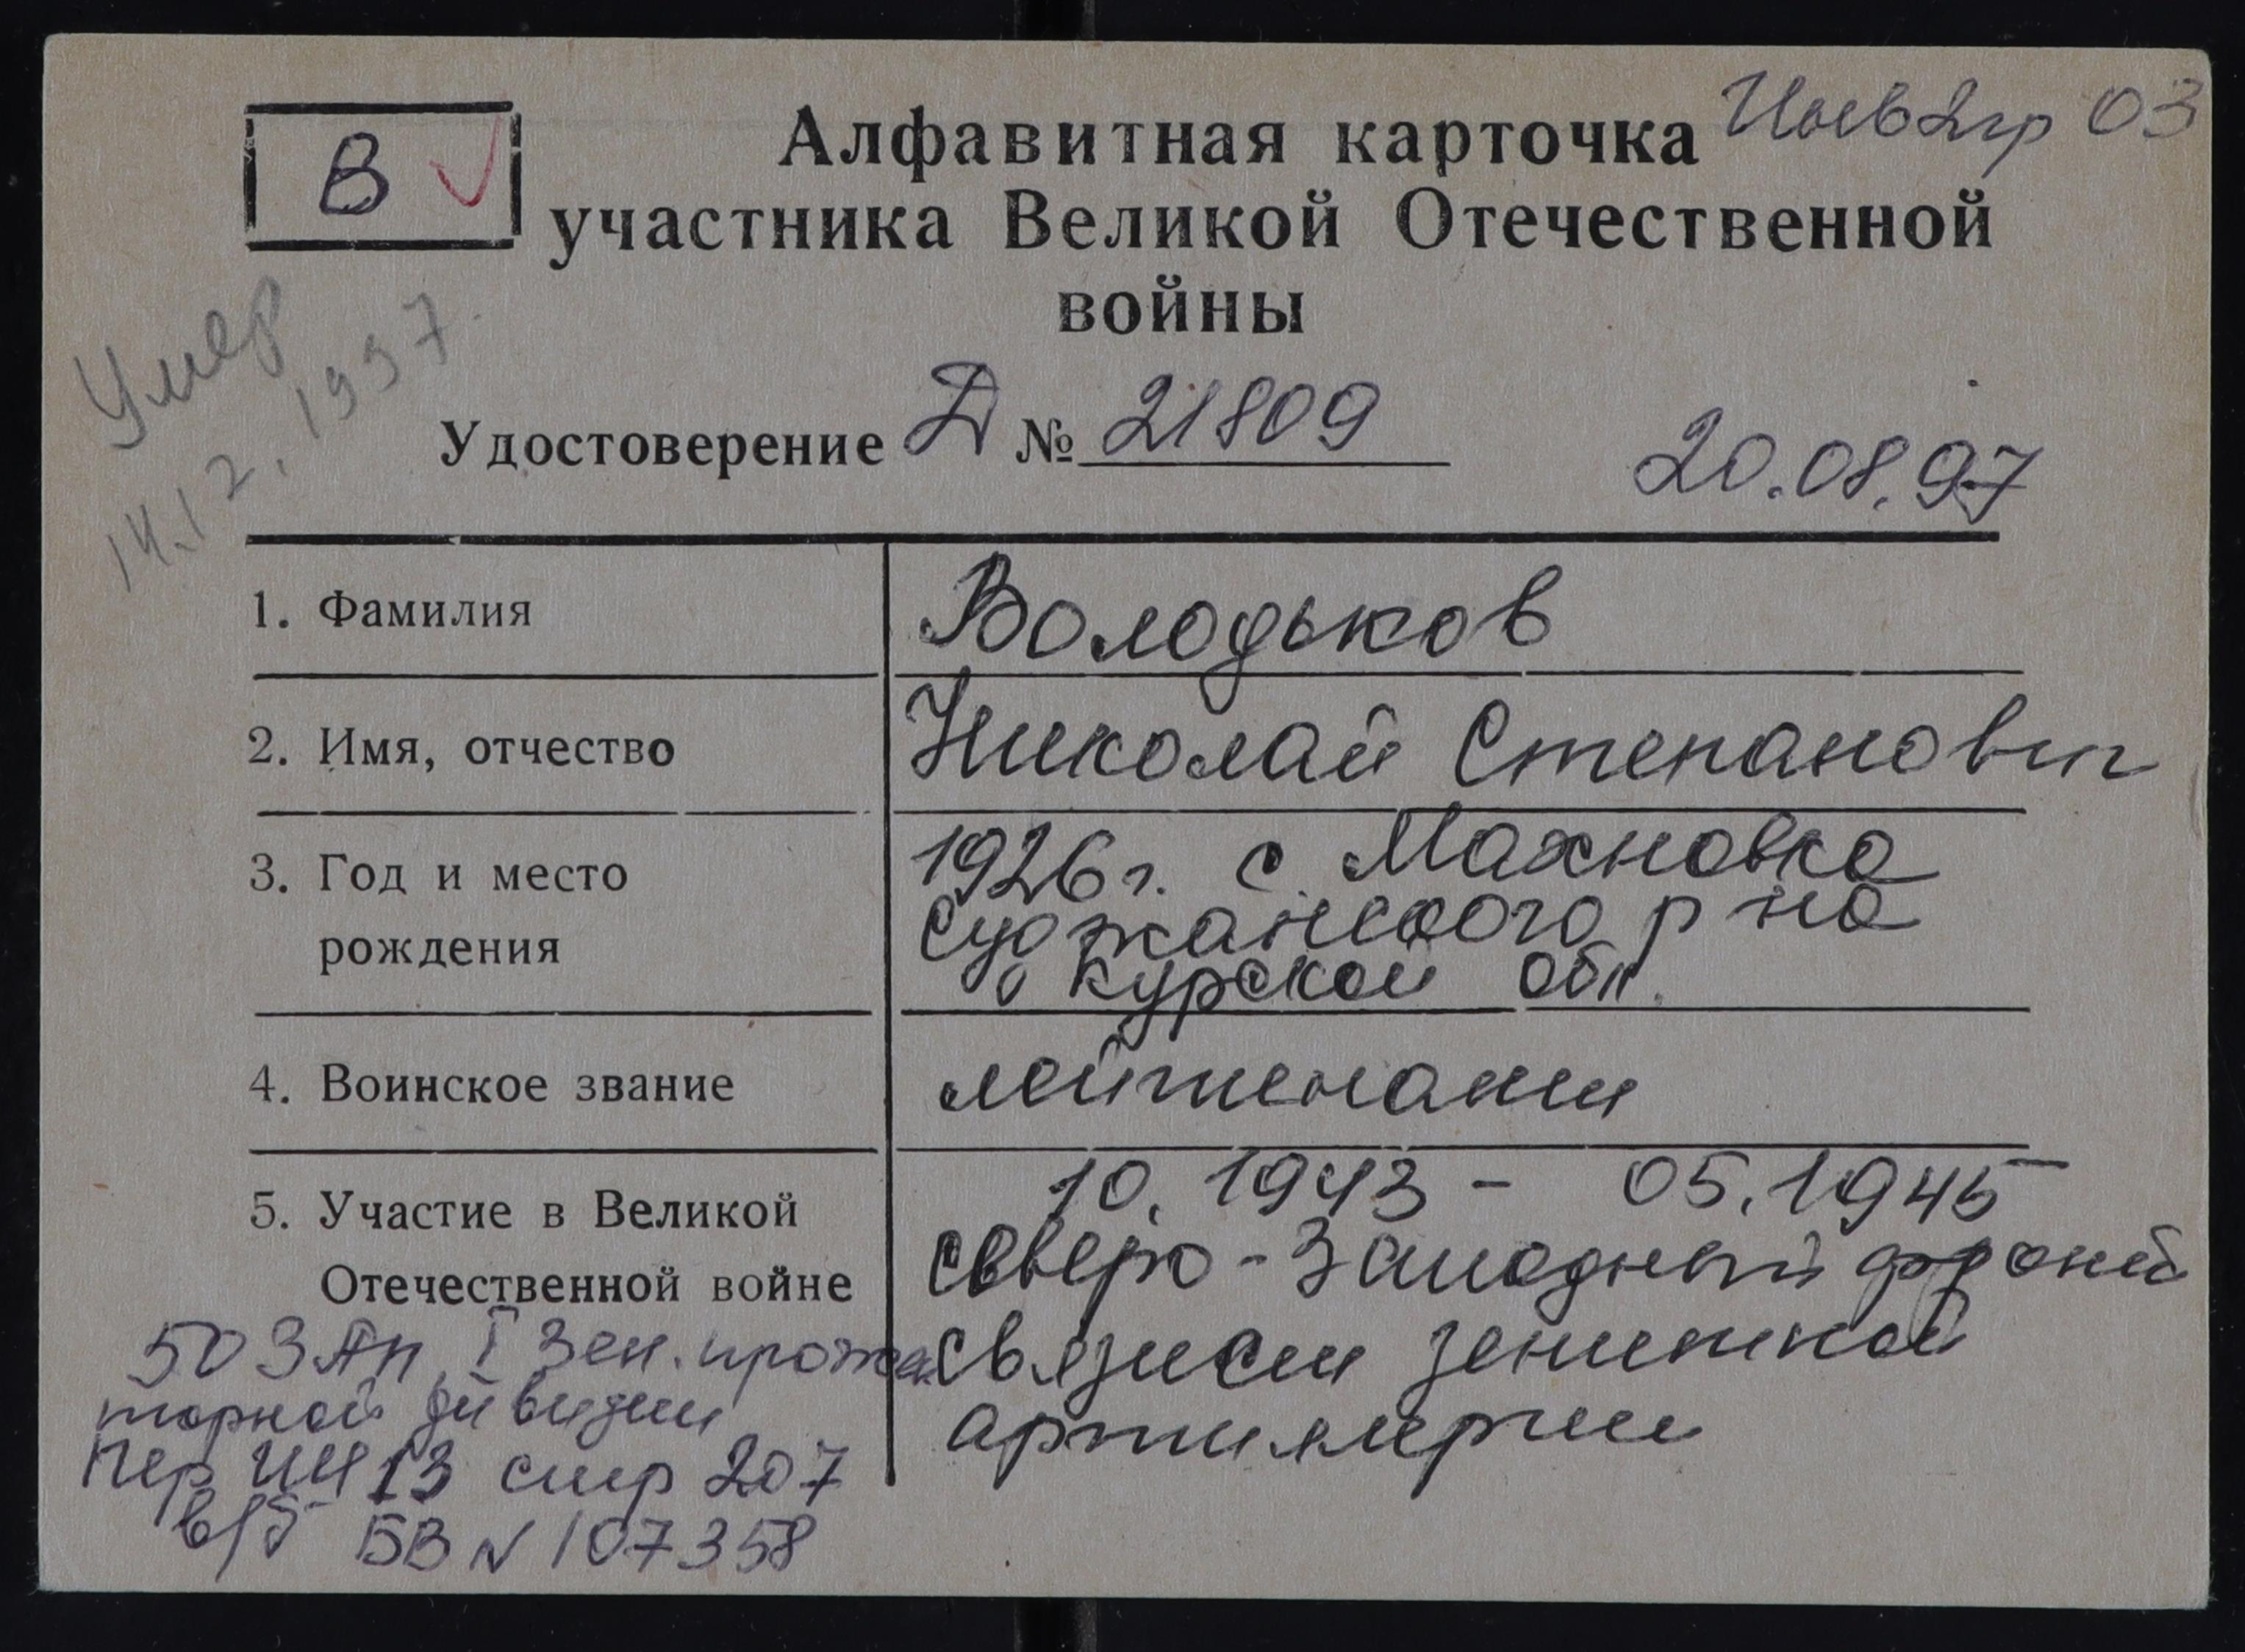 В
Алфавитная карточка
Инв 2гр 03
участника Великой Отечественной
войны
Умер
14.12.1997.
Удостоверение Д № 21809
20.08.97
1. Фамилия
Володьков
2. Имя, отчество
Николай Степанович
3. Год и место
рождения
1926 г. с. Махновка
Суджанского р на
Курской обл.
4. Воинское звание
лейтенант
5. Участие в Великой
Отечественной войне
10.1943 - 05.1945
Северо-Западный фронт
связист зенитной
артиллерии
50 ЗАП, I Зен. прожек
торной дивизии
ИЦ 13 стр 207
в/б БВ N 107358